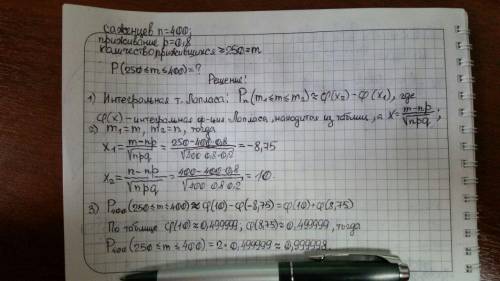 саженцев n=400;
приживание p=0,8
количество прижившихся ≥250=m
P(250≤m≤400)=?
Решение:
1) Интегральная т. Лапласа: Pn(m₁≤m≤m₂)≈φ(x₂)-φ(x₁), где
φ(x)-интегральная ф-ция Лапласа, находится из таблиц, а x=m-np/√npq;
2) m₁=m, m₂=n, тогда
x₁=m-np/√npq=250-400·0,8/√400·0,8·0,2=-8,75
x₂=n-np/√npq=400-400·0,8/√400·0,8·0,2=10
3) P₄₀₀(250≤m≤400)≈φ(10)-φ(-8,75)=φ(10)+φ(8,75)
По таблице φ(10)≈0,499999; φ(8,75)≈0,499999, тогда
P₄₀₀(250≤m≤400)=2·0,499999≈0,999998